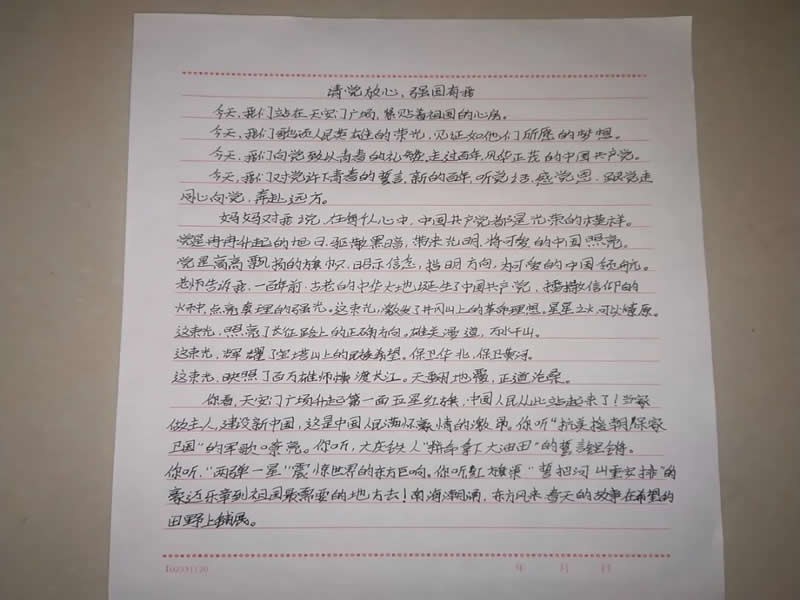 请党放心、强国有我
今天,我们站在天安门广场,紧贴着祖国的心房。
今天,我们歌唱人民英雄的荣光,见证如他们所愿的梦想。
今天,我们向党致以青春的礼赞,走过百年,风华正茂的中国共产党。
今天,我们对党许下青春的誓言,新的百年,听党话,感党恩,跟党走
同心向党,奔赴远方。
妈妈对我说,在每个人心中,中国共产党都是光荣的模样。
党是冉冉升起的旭日,驱散黑暗,带来光明,将可爱的中国照亮。
党是高高飘扬的旗帜,昭示信念,指明方向,为可爱的中国领航。
老师告诉我,一百年前,古老的中华大地诞生了中国共产党,播撒信仰的
火种,点亮真理的强光。这束光,激发了井冈山上的革命理想。星星之火,可以燎原。
这束光,照亮了长征路上的正确方向。雄关漫道,万水千山。
这束光,辉耀了宝塔山上的民族希望。保卫华北,保卫黄河。
这束光,映照了百万雄师横渡大江。天翻地覆,正道沧桑。
你看,天安门广场升起第一面五星红旗,中国人民从此站起来了!当家
做主人,建设新中国,这是中国人民满怀豪情的激昂。你听"抗美援朝,保家
卫国"的军歌嘹亮。你听,大庆铁人"拼命拿下大油田"的誓言铿锵。
你听,"两弹一星"震惊世界的东方巨响。你听红旗渠"誓把河山重安排"的
豪迈乐章到祖国最需要的地方去!南海潮涌,东方风来,春天的故事在希望的
田野上铺展。
年 月 日